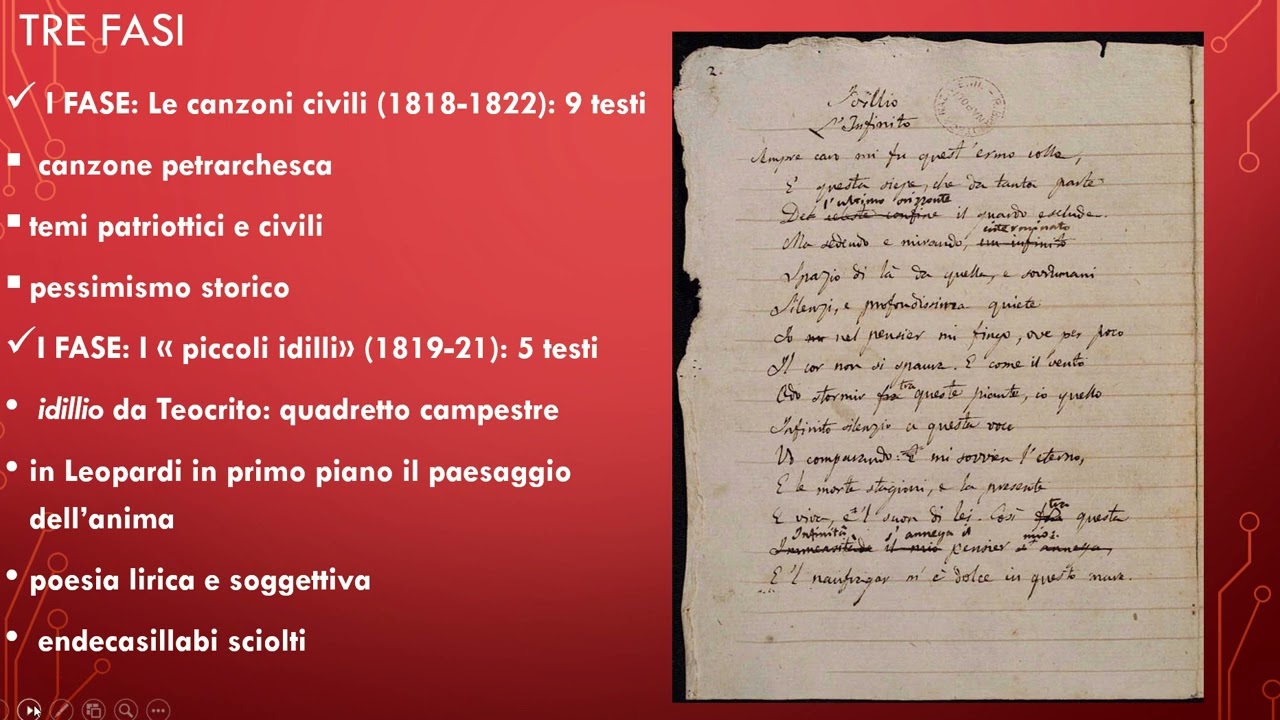 TRE FASI
I FASE: Le canzoni civili (1818-1822): 9 testi
canzone petrarchesca
temi patriottici e civili
pessimismo storico
I FASE: I « piccoli idilli» (1819-21): 5 testi
idillio da Teocrito: quadretto campestre
in Leopardi in primo piano il paesaggio
dell’anima
poesia lirica e soggettiva
endecasillabi sciolti
2.
Idillio
L'Infinito
Sempre caro mi fu quest'ermo colle,
E questa siepe, che da tanta parte
l'ultimo orizzonte
Del celeste confine il guardo esclude.
interminato
Ma sedendo e mirando, un infinito
Spazio di là da quella, e sovrumani
Silenzi, e profondissima quiete
Io nel pensier mi fingo, ove per poco
Il cor non si spaura. E come il vento
tra
Odo stormir fra queste piante, io quello
Infinito silenzio a questa voce
Vo comparando: E mi sovvien l'eterno,
E le morte stagioni, e la presente
tra
E viva, e 'l suon di lei. Così fra questa
Infinità s'annega il mio:
Immensitade il mio pensier s'annega,
E 'l naufragar m'è dolce in questo mare.